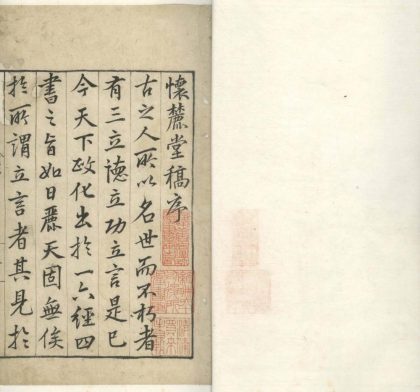 懷麓堂稿序
古之人所以名世而不朽者
有三立德立功立言是已
今天下政化出於一六經四
書之旨如日麗天固無俟
於所謂立言者其見於